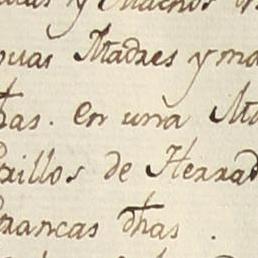 y Machos
Madres y ma
has. en una Ma
rillos de Herrad
francas dhas .